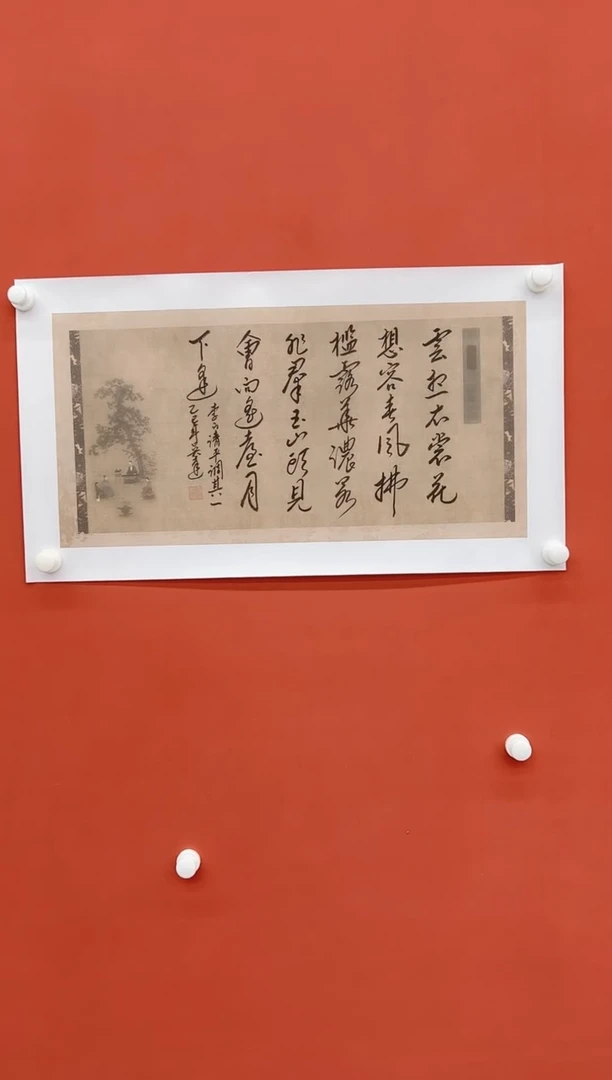 雲想衣裳花
想容春風拂
檻露華濃若
非羣玉山頭見
會向瑤臺月
下逢
李白清平調其一
乙巳年